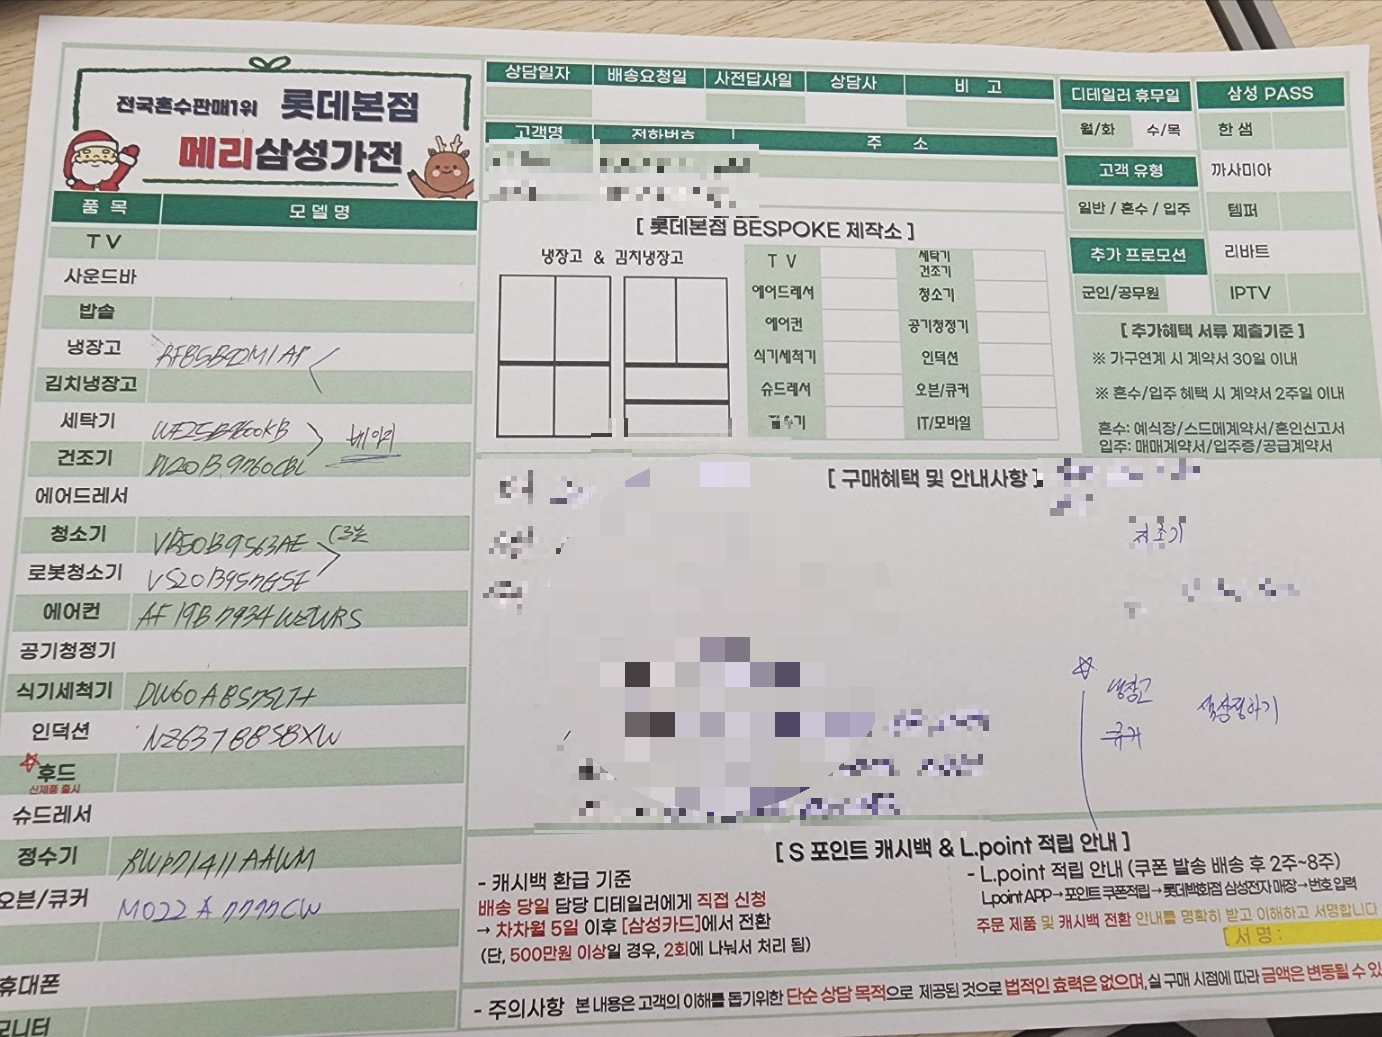 전국혼수판매1위 롯데본점
메리삼성가전
품 목 모 델 명
T V
사운드바
밥솥
냉장고 RF85B92M1AP
김치냉장고
세탁기 WF25B9600KB
건조기 DV20B9760CBL
에어드레서
청소기 VB50B9563AE
로봇청소기 VS20B957GSE
에어컨 AF19B7934WZWRS
공기청정기
식기세척기 DW60AB575LTH
인덕션 NZ63788SBXW
후드
신제품 출시
슈드레서
정수기 RWP71411AAWM
오븐/큐커 MO22A7777CW
휴대폰
모니터
상담일자 배송요청일 사전답사일 상담사 비 고
고객명 전화번호 주 소
[ 롯데본점 BESPOKE 제작소 ]
냉장고 & 김치냉장고
T V 세탁기 건조기
에어드레서 청소기
에어컨 공기청정기
식기세척기 인덕션
슈드레서 오븐/큐커
IT/모바일
디테일러 휴무일
월/화 수/목
고객 유형
일반 / 혼수 / 입주
추가 프로모션
군인/공무원
삼성 PASS
한 샘
까사미아
템퍼
리바트
IPTV
[ 추가혜택 서류 제출기준 ]
※ 가구연계 시 계약서 30일 이내
※ 혼수/입주 혜택 시 계약서 2주일 이내
혼수: 예식장/스드메계약서/혼인신고서
입주: 매매계약서/입주증/공급계약서
[ 구매혜택 및 안내사항 ]
건조기
냉장고
큐커
[ S 포인트 캐시백 & L.point 적립 안내 ]
- 캐시백 환급 기준
배송 당일 담당 디테일러에게 직접 신청
→ 차차월 5일 이후 [삼성카드]에서 전환
(단, 500만원 이상일 경우, 2회에 나눠서 처리 됨)
- L.point 적립 안내 (쿠폰 발송 배송 후 2주~8주)
L.point APP→포인트 쿠폰적립→롯데백화점 삼성전자 매장→번호 입력
주문 제품 및 캐시백 전환 안내를 명확히 받고 이해하고 서명합니다
[ 서 명 :
- 주의사항 본 내용은 고객의 이해를 돕기위한 단순 상담 목적으로 제공된 것으로 법적인 효력은 없으며, 실 구매 시점에 따라 금액은 변동될 수